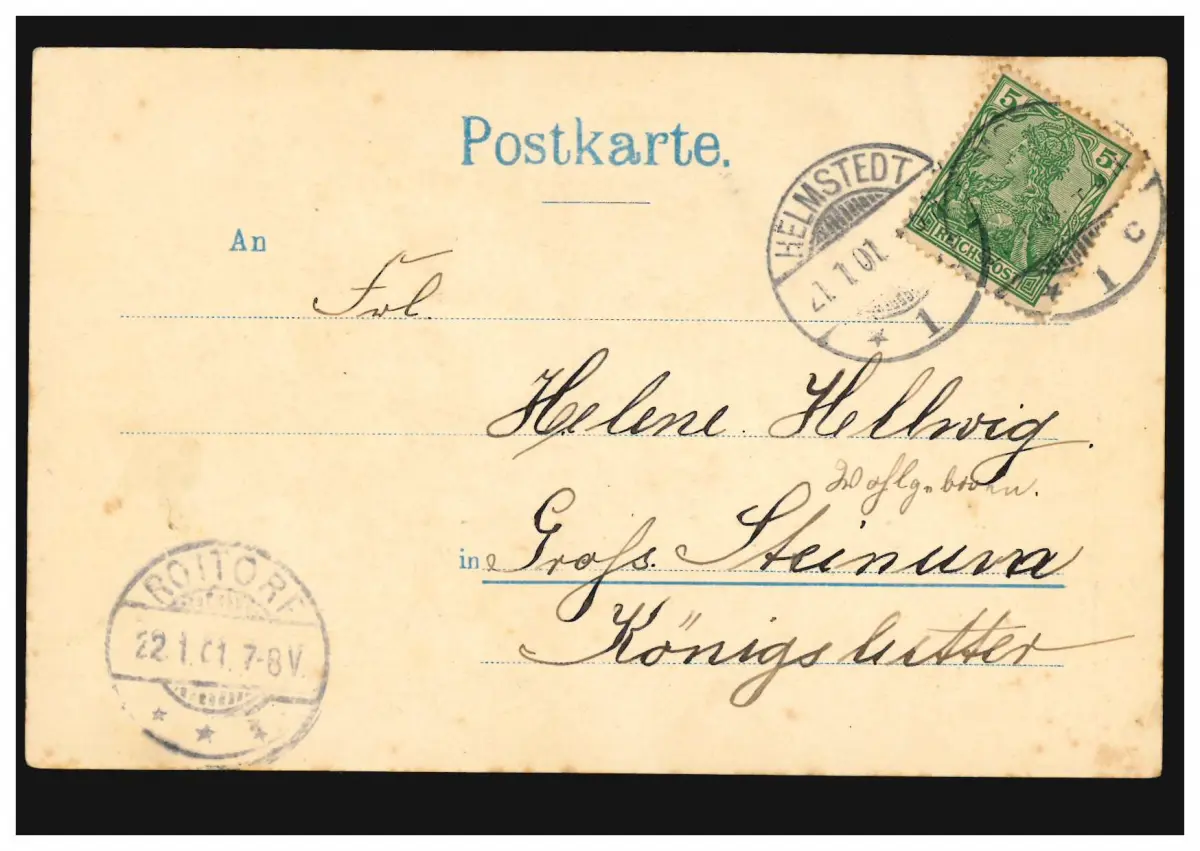 Postkarte.
An
Frl.
Helene Hellwig.
Wohlgeboren.
in Gross. Steinum
Königslutter
HELMSTEDT
21.1.01.
* 1
5 5
REICHSPOST
* 1 c
ROTTORF
22.1.01. 7-8V.